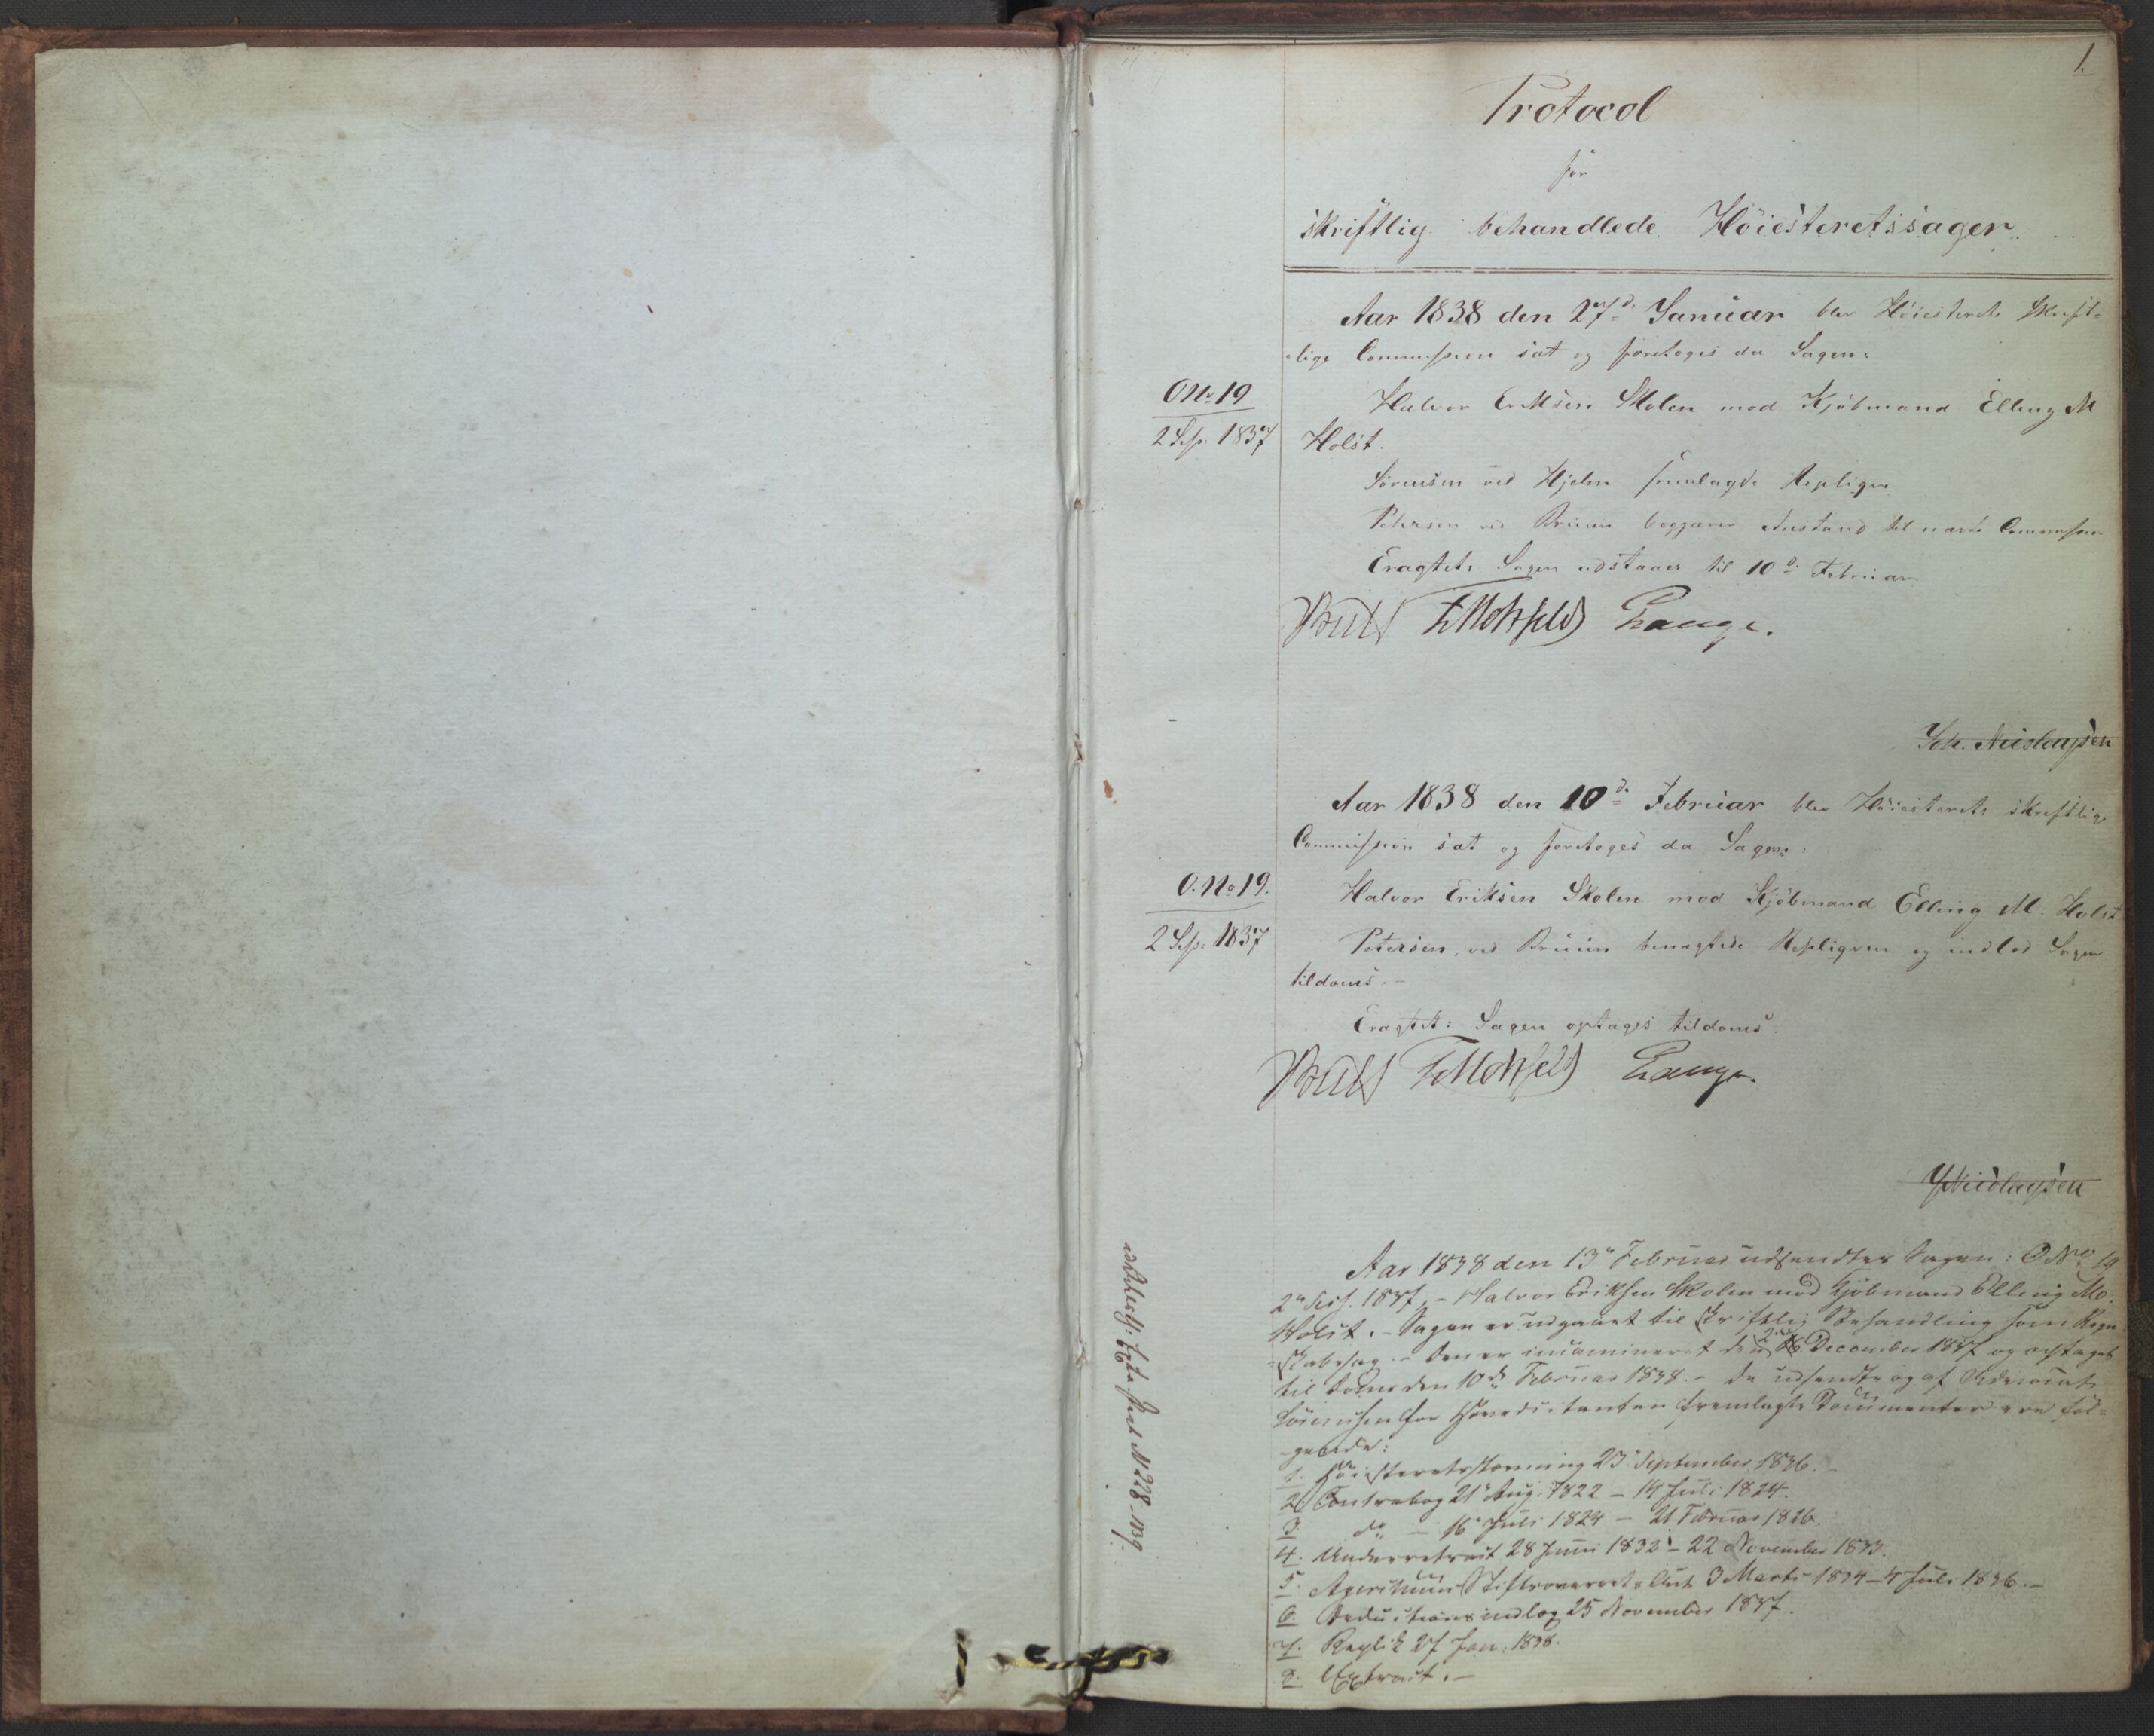 1.
Protocol
for
skriftlig behandlede Höiesteretssager
Aar 1838 den 27d. Januar blev Höiesterets skrift-
lige Commission sat og foretoges da Sagen:
O No 19
2 Sess. 1837
Halvor Eriksen Skolen mod Kjöbmand Elling M
Holst.
Sörensen ved Hjelm fremlagde Repliqve
Petersen ved Bruun begjærer Anstand til næste Commission
Eragtet: Sagen udstaaer til 10d. Februar
Bull F Motzfeldt Lange.
Joh. Nicolaysen
Aar 1838 den 10d. Februar blev Höiesterets skriftlige
Commission sat og foretoges da Sagen:
O. No 19.
2 Sess. 1837
Halvor Eriksen Skolen mod Kjöbmand Elling M. Holst
Petersen, ved Bruun benægtede Repliqven og indlod Sagen
tildoms.-
Eragtet: Sagen optages tildoms.
Bull F Motzfeldt Lange.
J Nicolaysen
Aar 1838 den 13de Februar udsendtes Sagen: O No 19
2den Sess. 1837, - Halvor Eriksen Skolen mod Kjöbmand Elling M.
Holst. - Sagen er udgaaet til skriftlig Behandling som Regn-
skabssag. - Den er incamineret den 2den December 1837 og optaget
til Doms den 10de Februar 1838. - De udsendte og af Advocat
Sörensen for Hovedcitanten fremlagte Documenter ere föl-
gende:
1. Höiesteretsstævning 23 September 1836. -
2. Contrabog 21 Aug. 1822 - 14 Juli 1824.
3. do - 16 Juli 1824 - 21 Februar 1826.
4. Underretsact 28 Juni 1832 - 22 November 1833.
5. Agershuus Stiftsoverrets Act 3 Marts 1834 - 4 Juli 1836. -
6. Deductionsindlæg 25 November 1837.
7. Replik 27 Jan. 1838.
8. Extract. -
No 228 - 1839.